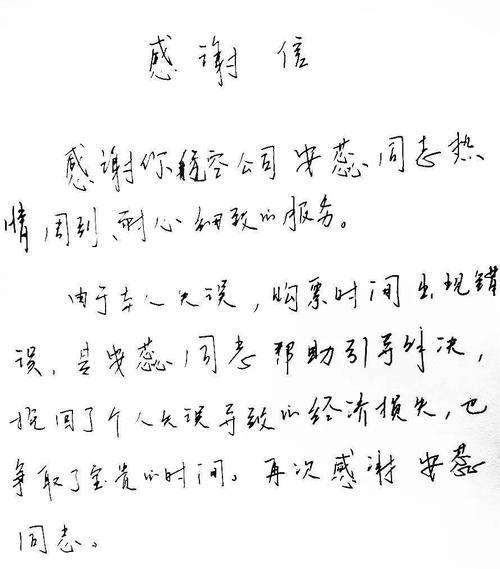 感谢信
感谢你航空公司安蕊同志热
情、周到、耐心细致的服务。
由于本人失误，购票时间出现错
误，是安蕊同志帮助引导解决，
挽回了个人失误导致的经济损失，也
争取了宝贵的时间。再次感谢安蕊
同志。